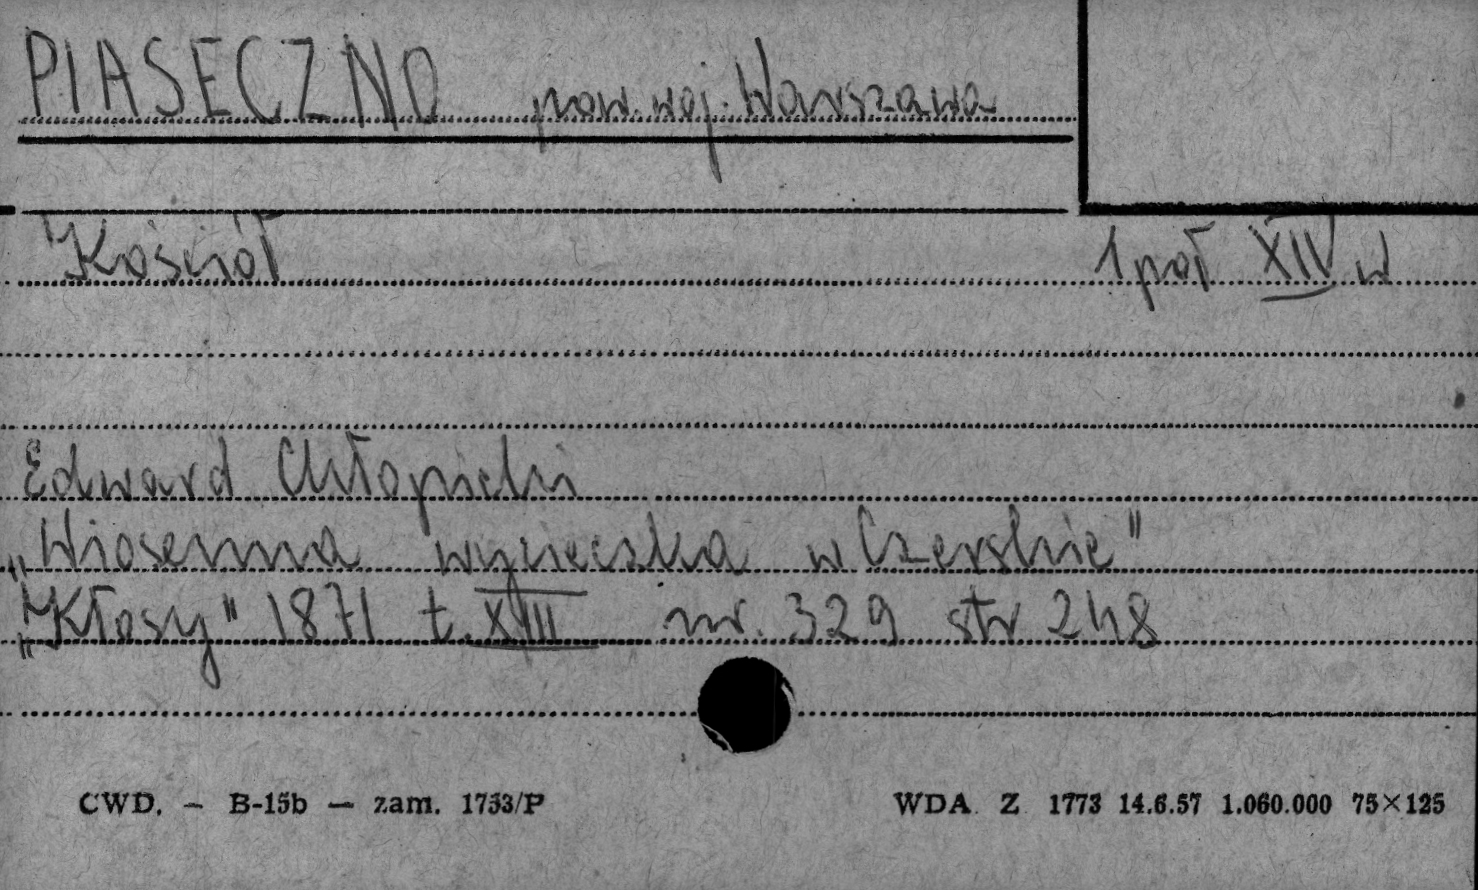 PIASECZNO pow. woj. Warszawa
Kościół 1 poł XIV w
Edward Chłopicki
„Wiosenna wycieczka w Czerskie"
„Kłosy" 1871 t. XVIII nr. 329 str 248
CWD. — B-15b — zam. 1753/P WDA. Z 1773 14.6.57 1.060.000 75×125